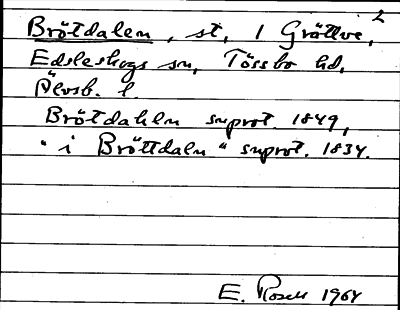 2
Brötdalen, st, 1 Grättve,
Edsleskogs sn, Tössbo hd,
Älvsb. l.
Brötdahln snprot. 1849,
"i Bröttdaln" snprot. 1834.
E. Rosell 1964